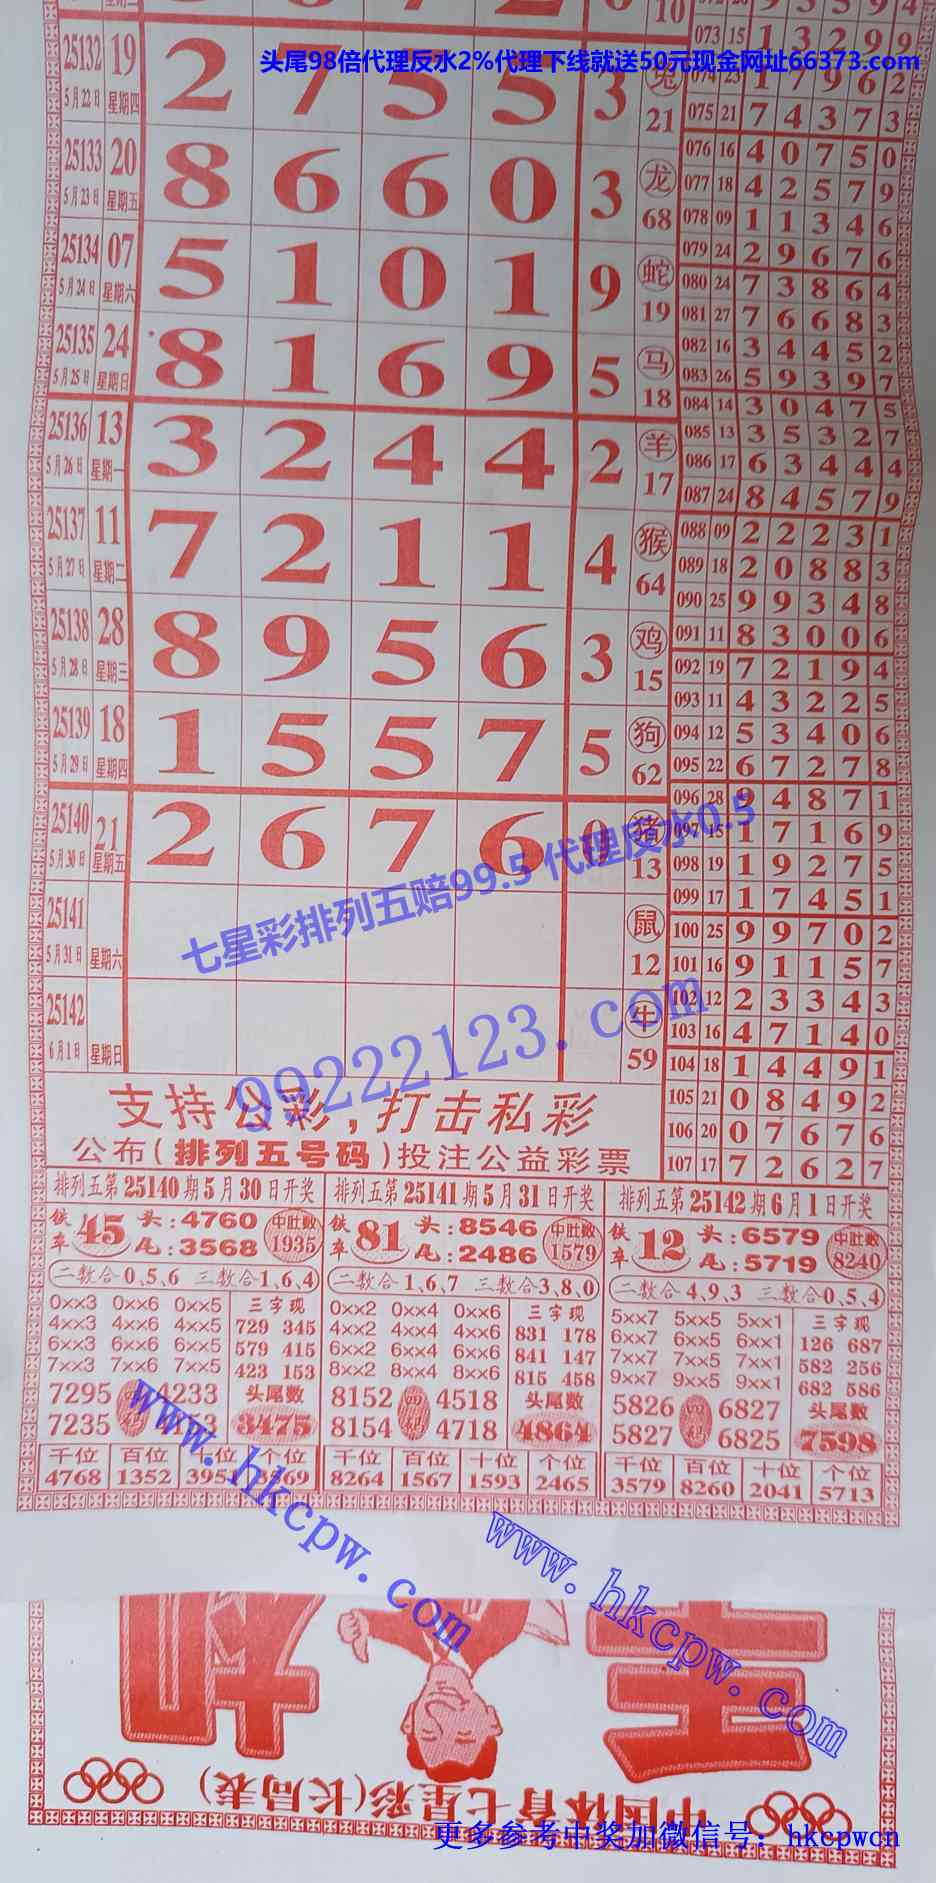 头尾98倍代理反水2%代理下线就送50元现金网址66373.com
10
25132 19 2 7 5 5 3 兔
5月22日 星期四 21
25133 20 8 6 6 0 3 龙
5月23日 星期五 68
25134 07 5 1 0 1 9 蛇
5月24日 星期六 19
25135 24 8 1 6 9 5 马
5月25日 星期日 18
25136 13 3 2 4 4 2 羊
5月26日 星期一 17
25137 11 7 2 1 1 4 猴
5月27日 星期二 64
25138 28 8 9 5 6 3 鸡
5月28日 星期三 15
25139 18 1 5 5 7 5 狗
5月29日 星期四 62
25140 21 2 6 7 6 0 猪
5月30日 星期五 13
25141 鼠
5月31日 星期六 12
25142 牛
6月1日 星期日 59
073 15 1 3 2 9 9
074 23 1 7 9 6 2
075 21 7 4 3 7 3
076 16 4 0 7 5 0
077 18 4 2 5 7 9
078 09 1 1 3 4 6
079 24 2 9 6 7 6
080 24 7 3 8 6 4
081 27 7 6 6 8 3
082 16 3 4 4 5 2
083 26 5 9 3 9 7
084 14 3 0 4 7 5
085 13 3 5 3 2 7
086 17 6 3 4 4 4
087 24 8 4 5 7 9
088 09 2 2 2 3 1
089 18 2 0 8 8 3
090 25 9 9 3 4 8
091 11 8 3 0 0 6
092 19 7 2 1 9 4
093 11 4 3 2 2 5
094 12 5 3 4 0 6
095 22 6 7 2 7 8
096 28 9 4 8 7 1
097 15 1 7 1 6 9
098 19 1 9 2 7 5
099 17 1 7 4 5 1
100 25 9 9 7 0 2
101 16 9 1 1 5 7
102 12 2 3 3 4 3
103 16 4 7 1 4 0
104 18 1 4 4 9 1
105 21 0 8 4 9 2
106 20 0 7 6 7 6
107 17 7 2 6 2 7
七星彩排列五赔99.5 代理反水0.5
99222123.com
支持公彩,打击私彩
公布(排列五号码)投注公益彩票
排列五第25140期5月30日开奖
铁车 45 头:4760 中肚数
尾:3568 1935
二数合0,5,6 三数合1,6,4
0××3 0××6 0××5 三字现
4××3 4××6 4××5 729 345
6××3 6××6 6××5 579 415
7××3 7××6 7××5 423 153
7295 4233 头尾数
7235 3475
千位 百位 十位 个位
4768 1352 395 3569
排列五第25141期5月31日开奖
铁车 81 头:8546 中肚数
尾:2486 1579
二数合1,6,7 三数合3,8,0
0××2 0××4 0××6 三字现
4××2 4××4 4××6 831 178
6××2 6××4 6××6 841 147
8××2 8××4 8××6 815 458
8152 四 4518 头尾数
8154 码 4718 4864
千位 百位 十位 个位
8264 1567 1593 2465
排列五第25142期6月1日开奖
铁车 12 头:6579 中肚数
尾:5719 8240
二数合4,9,3 三数合0,5,4
5××7 5××5 5××1 三字现
6××7 6××5 6××1 126 687
7××7 7××5 7××1 582 256
9××7 9××5 9××1 682 586
5826 四 6827 头尾数
5827 码 6825 7598
千位 百位 十位 个位
3579 8260 2041 5713
www.hkcpw.com
www.hkcpw.com
中国体育七星彩(长局表)
更多参考中奖加微信号:hkcpwcn